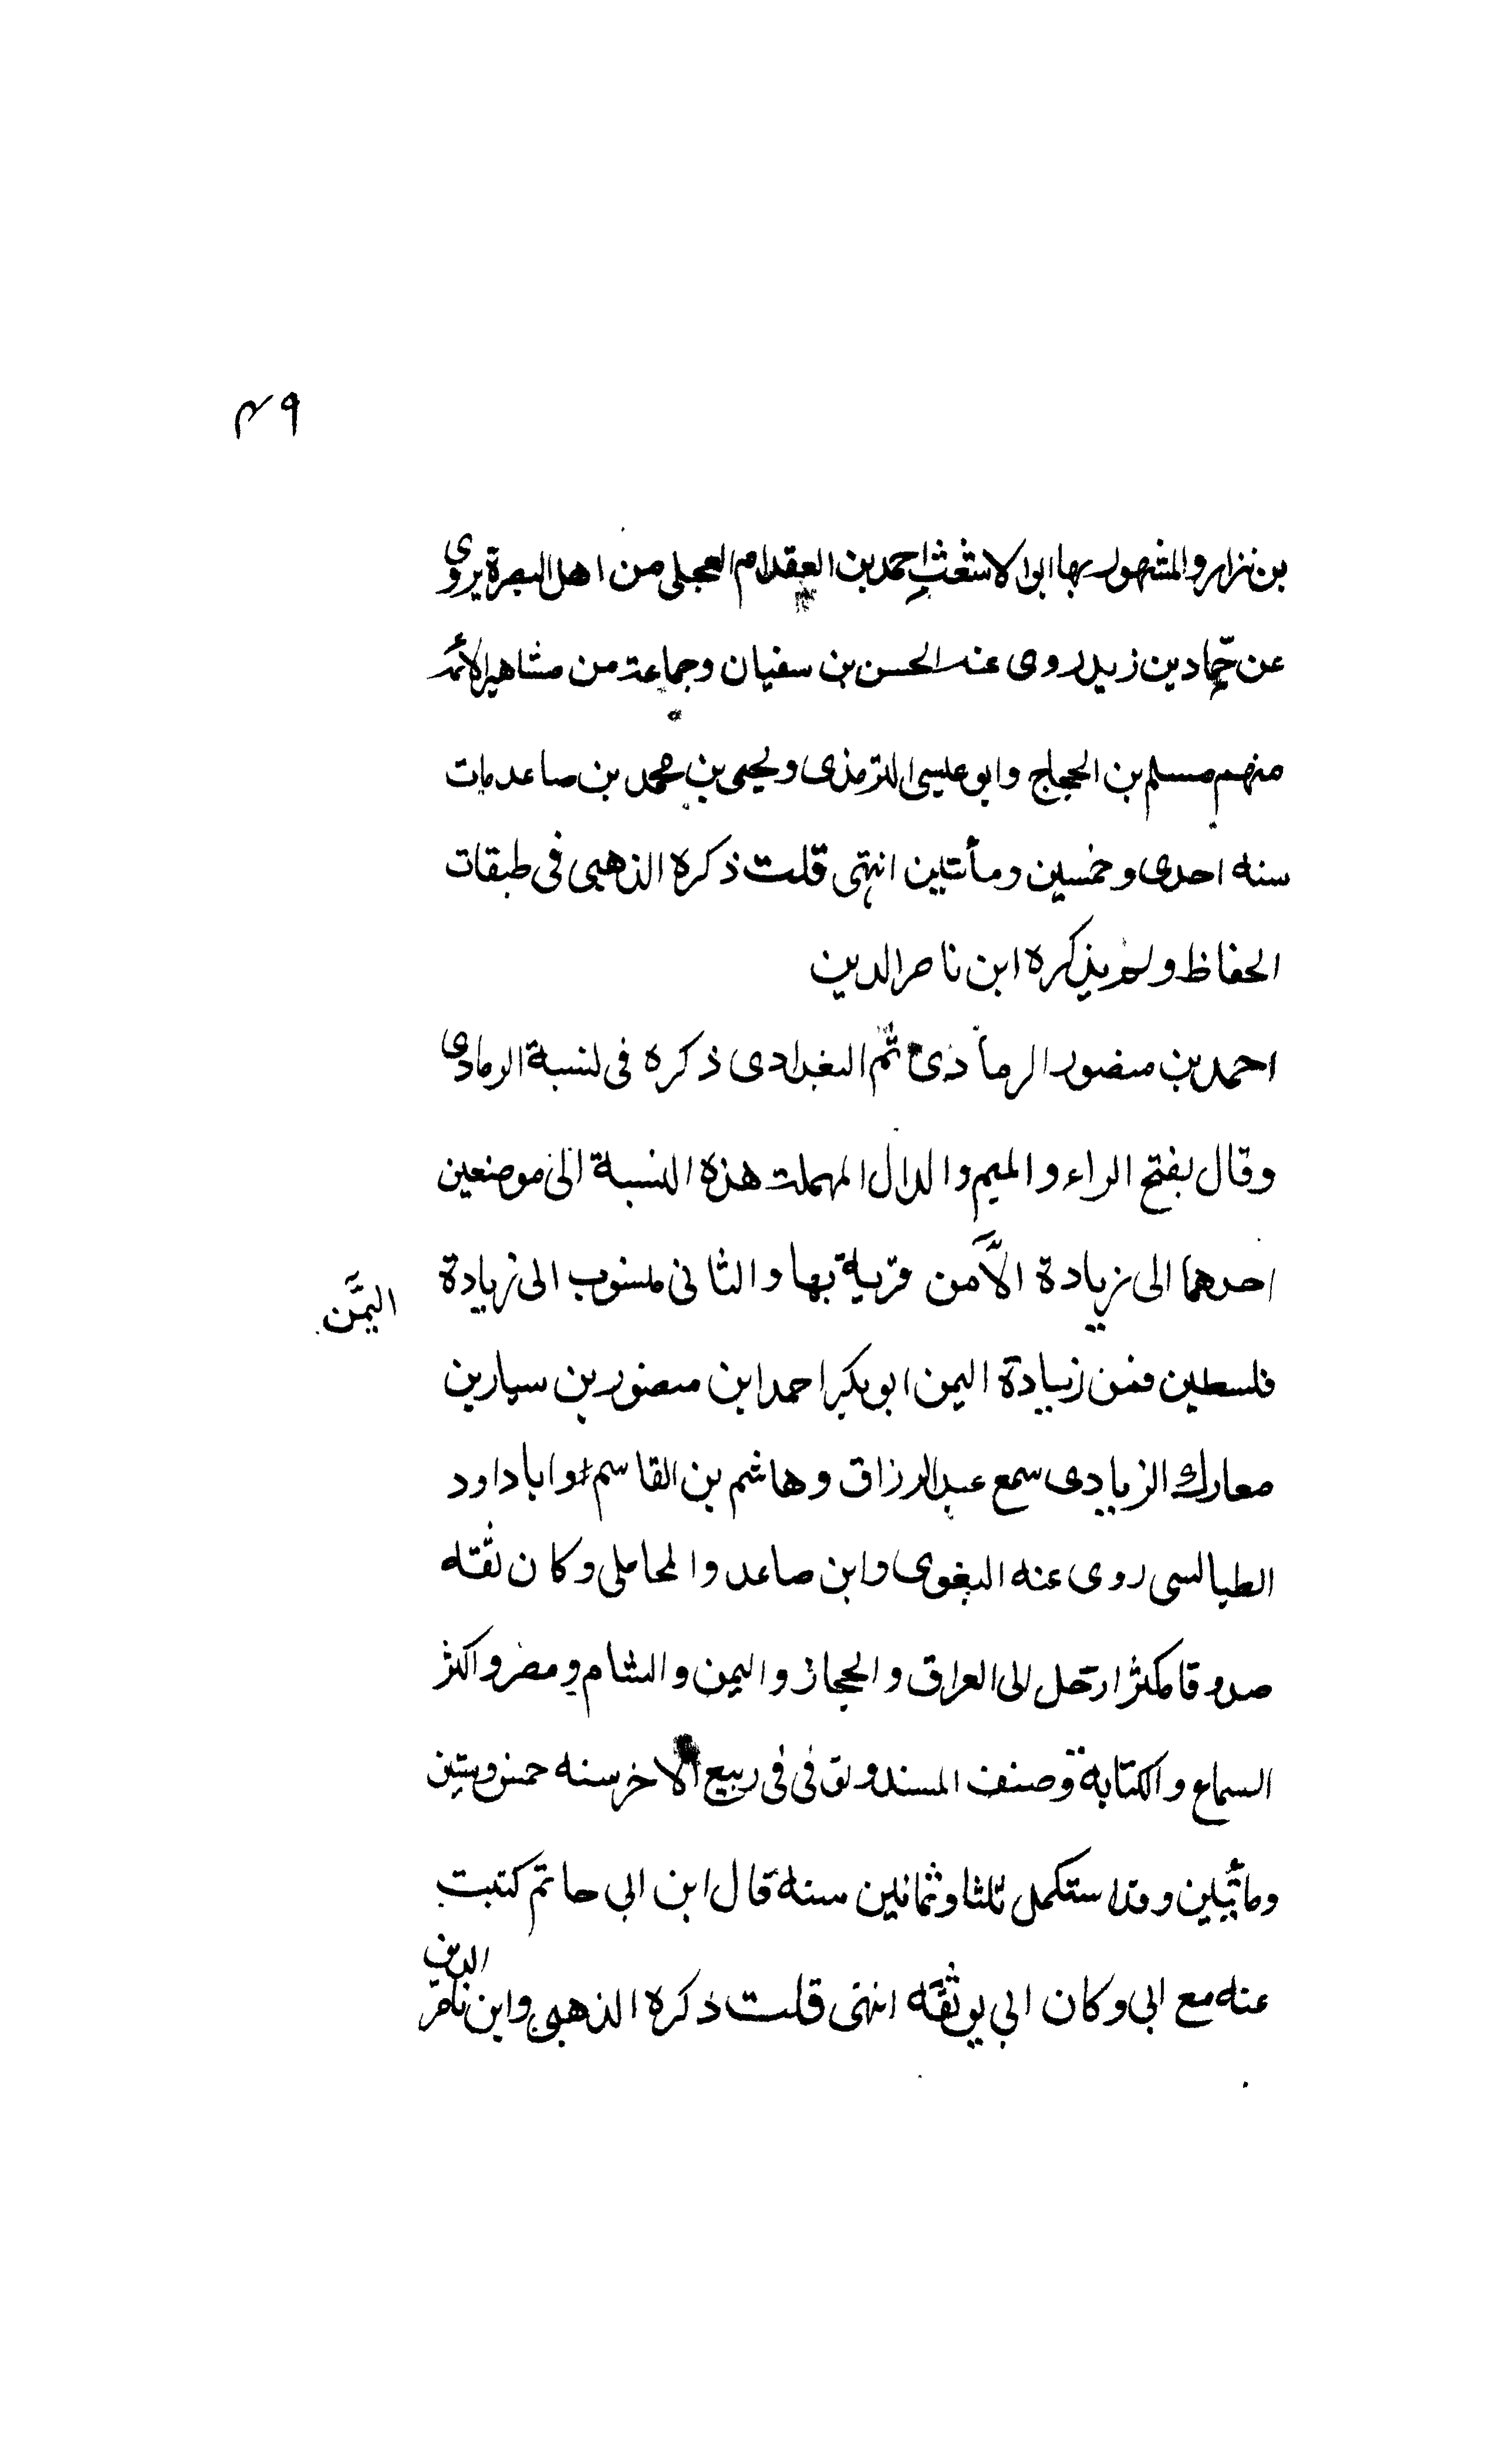 ٤٩
بن نزار والمشهور بها ابوالاشعث احمد بن العقدام العجلى من اهل البصرة يروى
عن حماد بن زيد روى عنه الحسن بن سفيان وجماعة من مشاهير الأئمه
منهم مسلم بن الحجاج وابو عيسى الترمذى ويحيى بن محمد بن صاعد مات
سنه احدى وخمسين ومأتين انتهى قلت ذكره الذهبى فى طبقات
الحفاظ ولم يذكره ابن ناصر الدين
احمد بن منصور الرمادى ثم البغدادى ذكره فى نسبة الرمادى
وقال بفتح الراء والميم والدال المهملت هذه النسبة الى موضعين
احدهما الى زيادة الآمن قرية بها والثانى منسوب الى زيادة
اليمن
فلسطين فمن زيادة اليمن ابو بكر احمد ابن منصور بن سيار بن
معارك الزيادى سمع عبد الرزاق وهاشم بن القاسم وابا داود
الطيالسى روى عنه البغوى وابن صاعد والمحاملى وكان ثقته
صدوقا مكثرا رتحل الى العراق والحجاز واليمن والشام ومصر واكثر
السماع والكتابة وصنف المسند وتوفى فى ربيع الاخر سنه خمس وستين
ومأتين وقد استكمل ثلثا وثمانين سنة قال ابن ابى حاتم كتبت
عنه مع ابى وكان ابى يوثقه انتهى قلت ذكره الذهبى وابن ناصر الدين